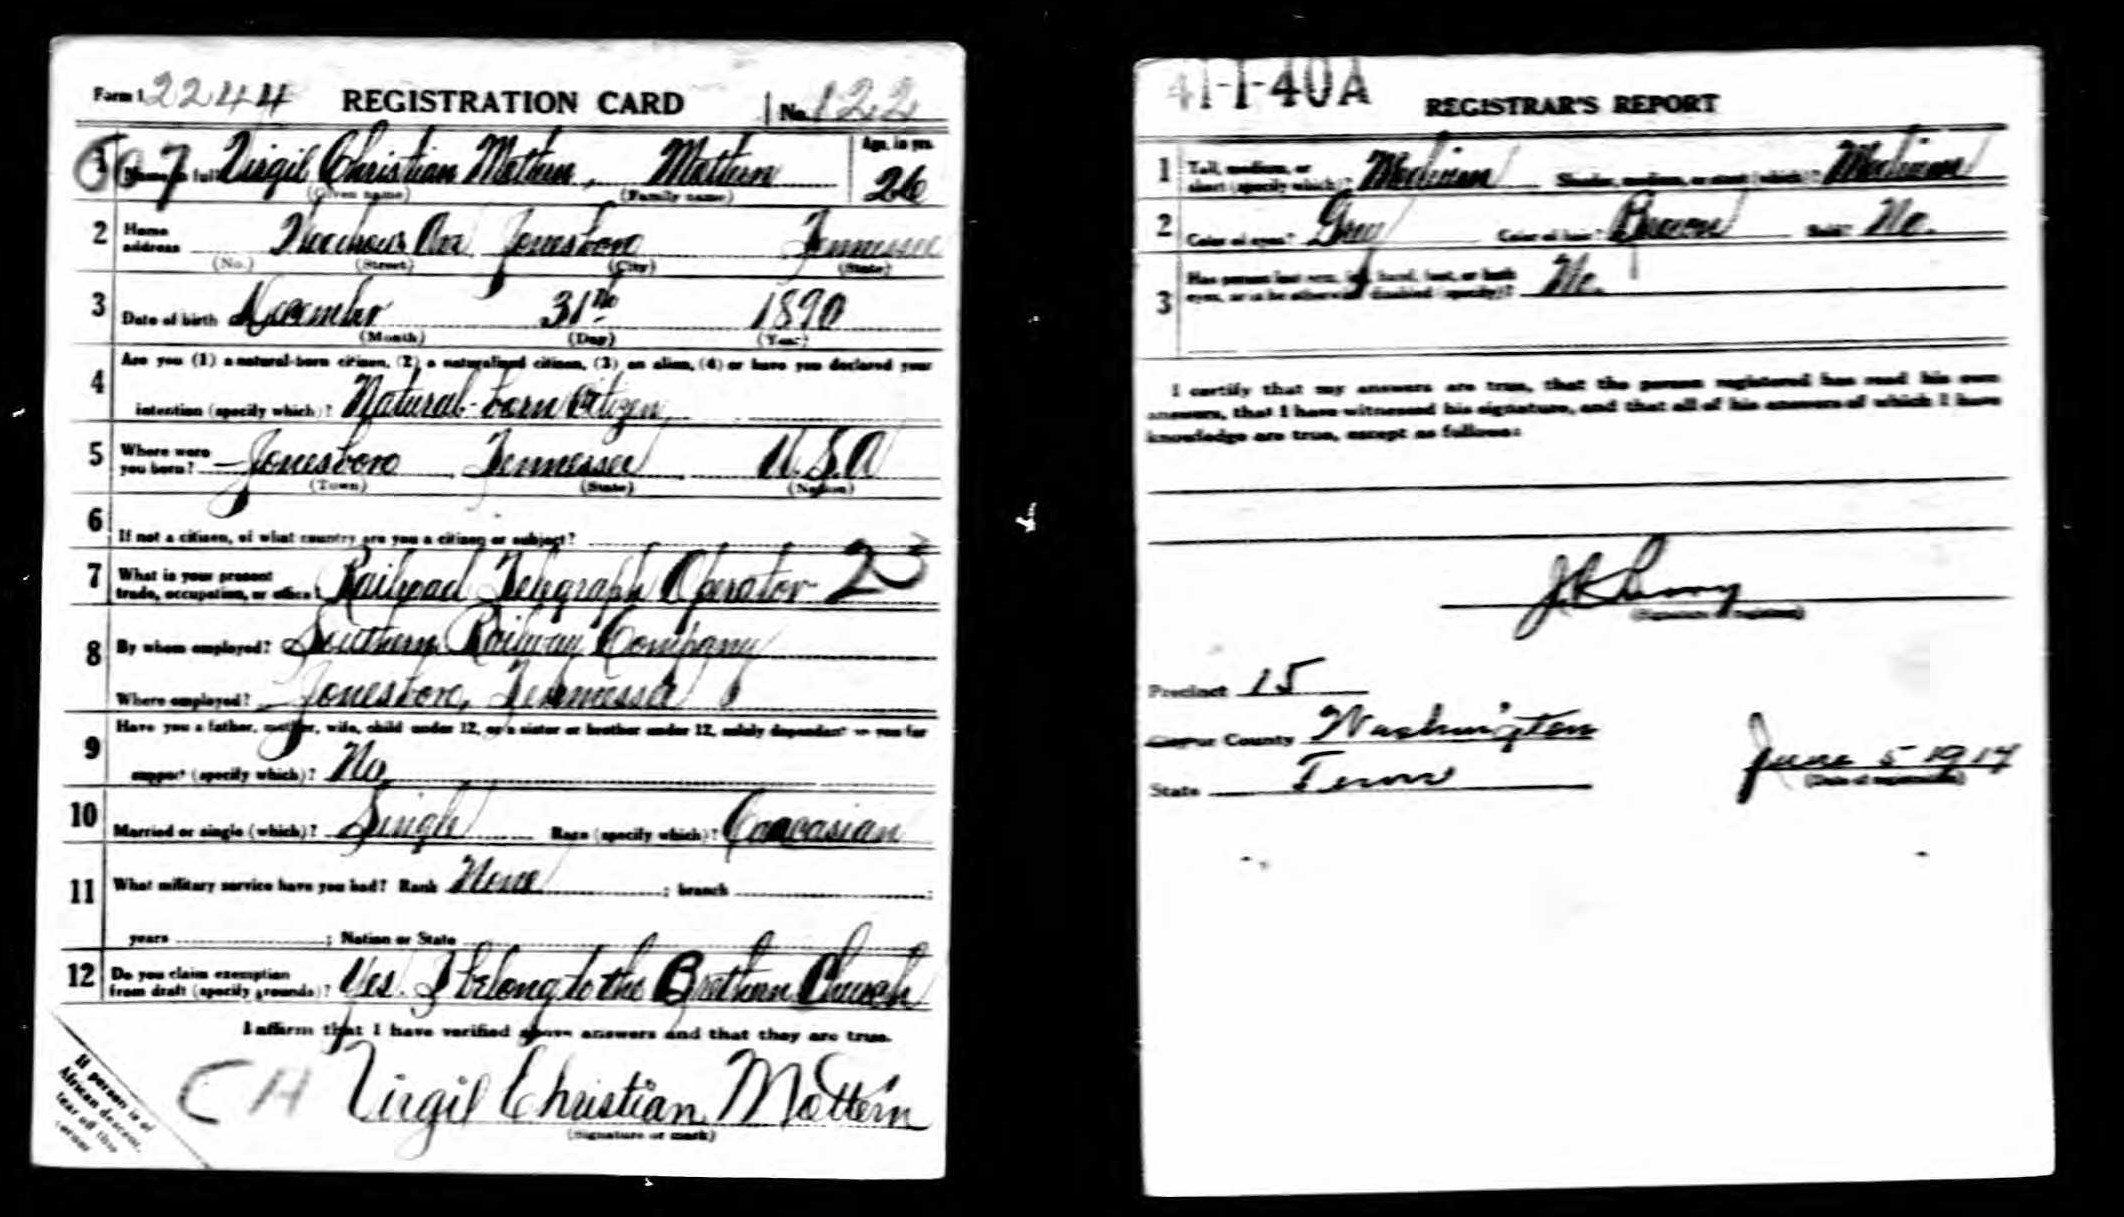 Form 1 2244 REGISTRATION CARD No. 122
1 Name in full Virgil Christian Mattern, Mattern Age, in yrs. 26
(Given name) (Family name)
2 Home address Ave Jonesboro Tennessee
(No.) (Street) (City) (State)
3 Date of birth 31 1890
(Month) (Day) (Year)
4 Are you (1) a natural-born citizen, (2) a naturalized citizen, (3) an alien, (4) or have you declared your
intention (specify which)? Natural-born Citizen
5 Where were you born? Jonesboro, Tennessee, U.S.A
(Town) (State) (Nation)
6 If not a citizen, of what country are you a citizen or subject?
7 What is your present trade, occupation, or office? Railroad Telegraph Operator 23
8 By whom employed? Southern Railway Company
Where employed? Jonesboro, Tennessee
9 Have you a father, mother, wife, child under 12, or a sister or brother under 12, solely dependent on you for
support (specify which)? No
10 Married or single (which)? Single Race (specify which)? Caucasian
11 What military service have you had? Rank None ; branch ;
years ; Nation or State
12 Do you claim exemption from draft (specify grounds)? Yes. I belong to the Brethren Church
I affirm that I have verified above answers and that they are true.
C H Virgil Christian Mattern
(Signature or mark)
If person is of
African descent,
tear off this
corner
41-1-40A REGISTRAR'S REPORT
1 Tall, medium, or short (specify which)? Medium Slender, medium, or stout (which)? Medium
2 Color of eyes? Grey Color of hair? Brown Bald? No.
3 Has person lost arm, leg, hand, foot, or both
eyes, or is he otherwise disabled (specify)? No.
I certify that my answers are true, that the person registered has read his own
answers, that I have witnessed his signature, and that all of his answers of which I have
knowledge are true, except as follows:
(Signature of registrar)
Precinct 15
City or County Washington
State Tenn June 5 1917
(Date of registration)